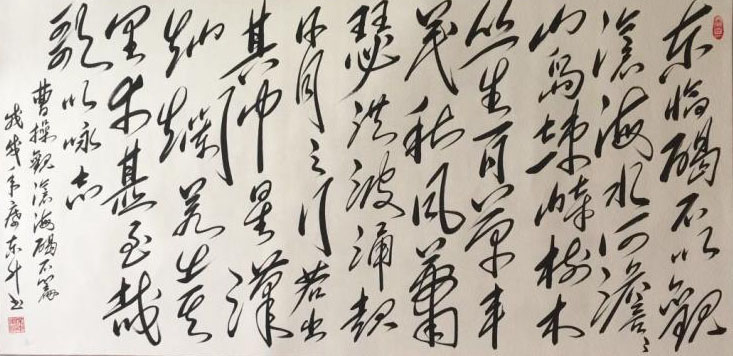 东临碣石以觀
滄海水何澹々
山岛竦峙树木
丛生百草丰
茂秋风萧
瑟洪波涌起
日月之行若出
其中星漢
灿爛若出其
里幸甚至哉
歌以咏志
曹操觀滄海碣石篇
戊戌年东书